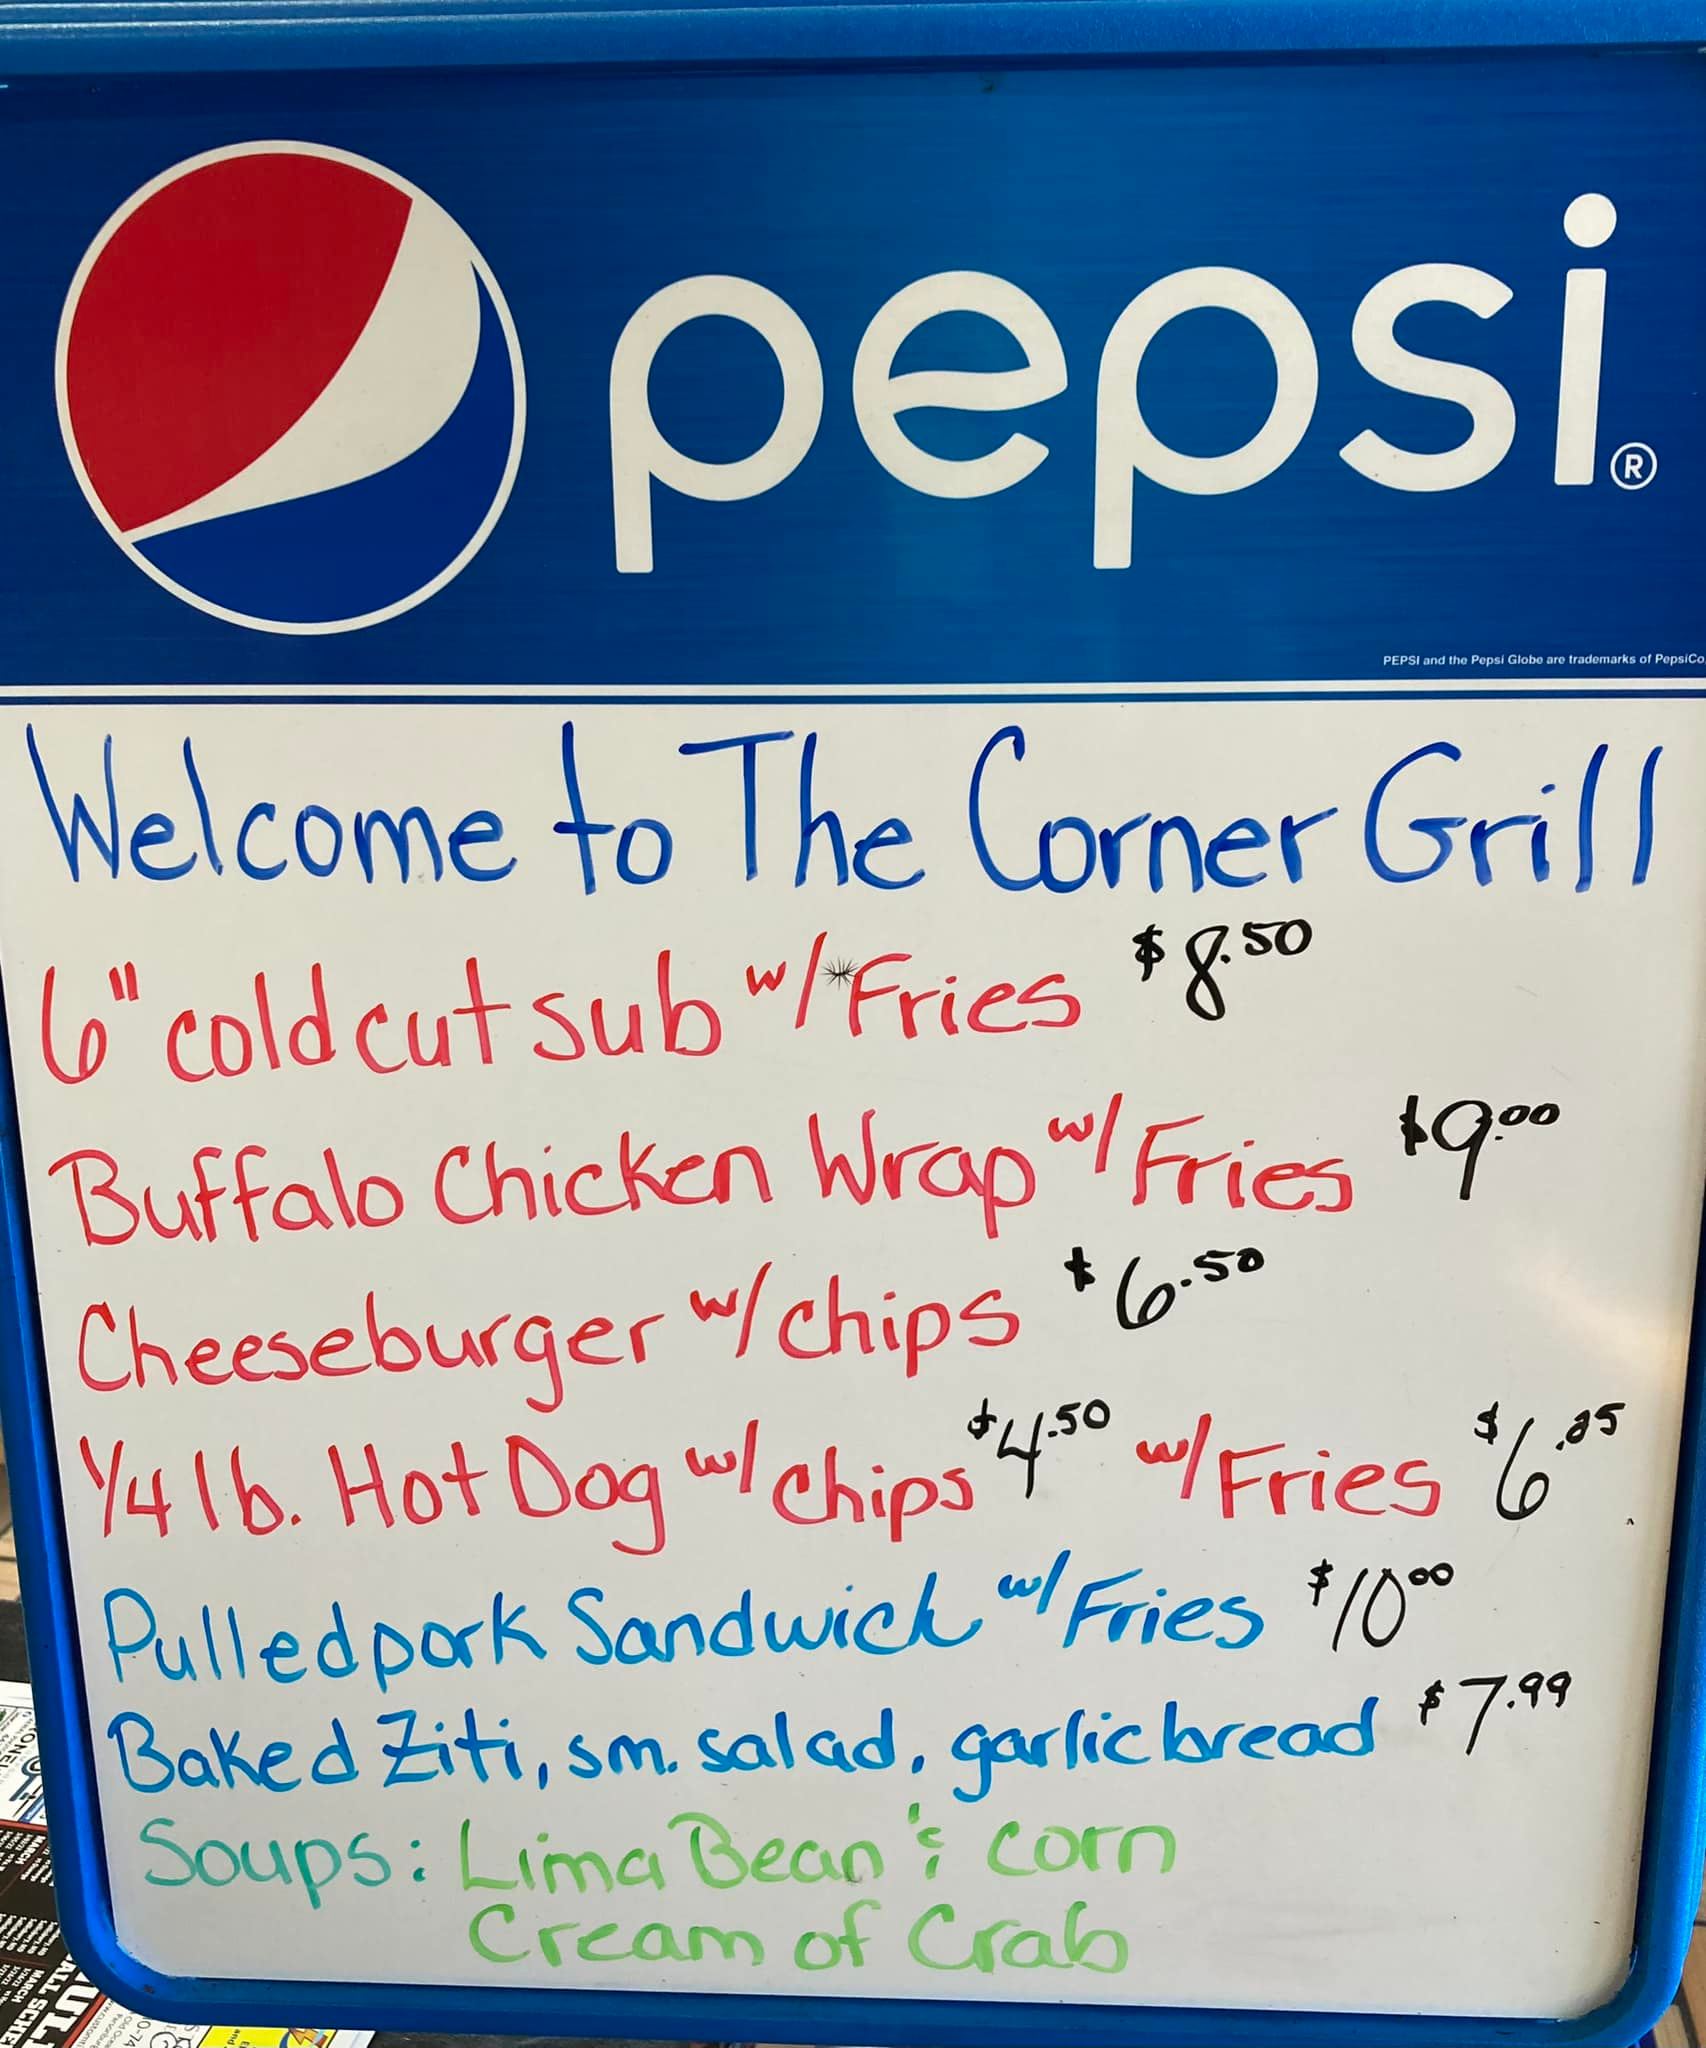 pepsi®
PEPSI and the Pepsi Globe are trademarks of PepsiCo
Welcome to The Corner Grill
6" cold cut sub w/ Fries $8.50
Buffalo Chicken Wrap w/ Fries $9.00
Cheeseburger w/ chips $6.50
1/4 lb. Hot Dog w/ chips $4.50 w/ Fries $6.25
Pulled pork Sandwich w/ Fries $10.00
Baked Ziti, sm. salad, garlic bread $7.99
Soups: Lima Bean & corn
Cream of Crab